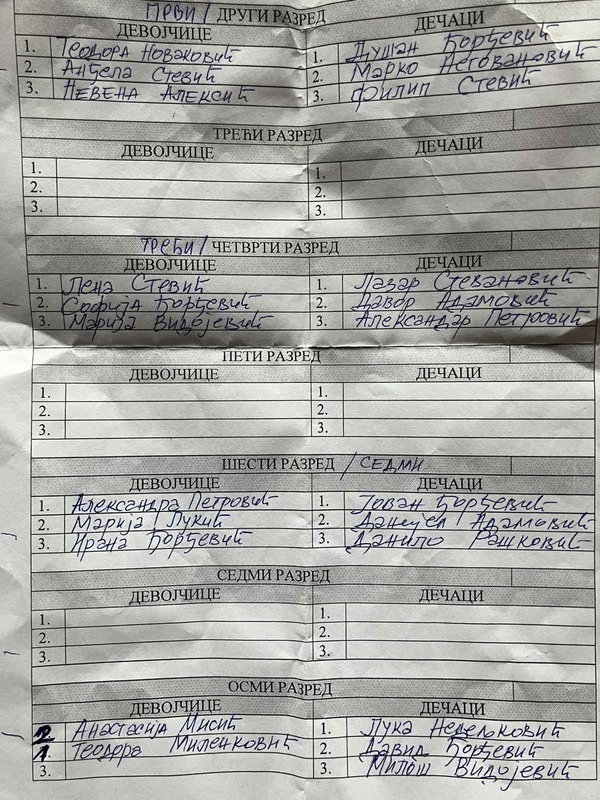 ПРВИ/ ДРУГИ РАЗРЕД
ДЕВОЈЧИЦЕ ДЕЧАЦИ
1. Теодора Новаковић 1. Душан Ђорђевић
2. Анђела Стевић 2. Марко Неговановић
3. Невена Алексић 3. Филип Стевић
ТРЕЋИ РАЗРЕД
ДЕВОЈЧИЦЕ ДЕЧАЦИ
1. 1.
2. 2.
3. 3.
ТРЕЋИ/ ЧЕТВРТИ РАЗРЕД
ДЕВОЈЧИЦЕ ДЕЧАЦИ
1. Лена Стевић 1. Лазар Стевановић
2. Софија Ђорђевић 2. Давор Адамовић
3. Марија Видојевић 3. Александар Петровић
ПЕТИ РАЗРЕД
ДЕВОЈЧИЦЕ ДЕЧАЦИ
1. 1.
2. 2.
3. 3.
ШЕСТИ РАЗРЕД /СЕДМИ
ДЕВОЈЧИЦЕ ДЕЧАЦИ
1. Александра Петровић 1. Јован Ђорђевић
2. Марија Лукић 2. Данијел Адамовић
3. Ирана Ђорђевић 3. Данило Рашковић
СЕДМИ РАЗРЕД
ДЕВОЈЧИЦЕ ДЕЧАЦИ
1. 1.
2. 2.
3. 3.
ОСМИ РАЗРЕД
ДЕВОЈЧИЦЕ ДЕЧАЦИ
2. Анастасија Мисић 1. Лука Недељковић
1. Теодора Миленковић 2. Давид Ђорђевић
3. 3. Милош Видојевић